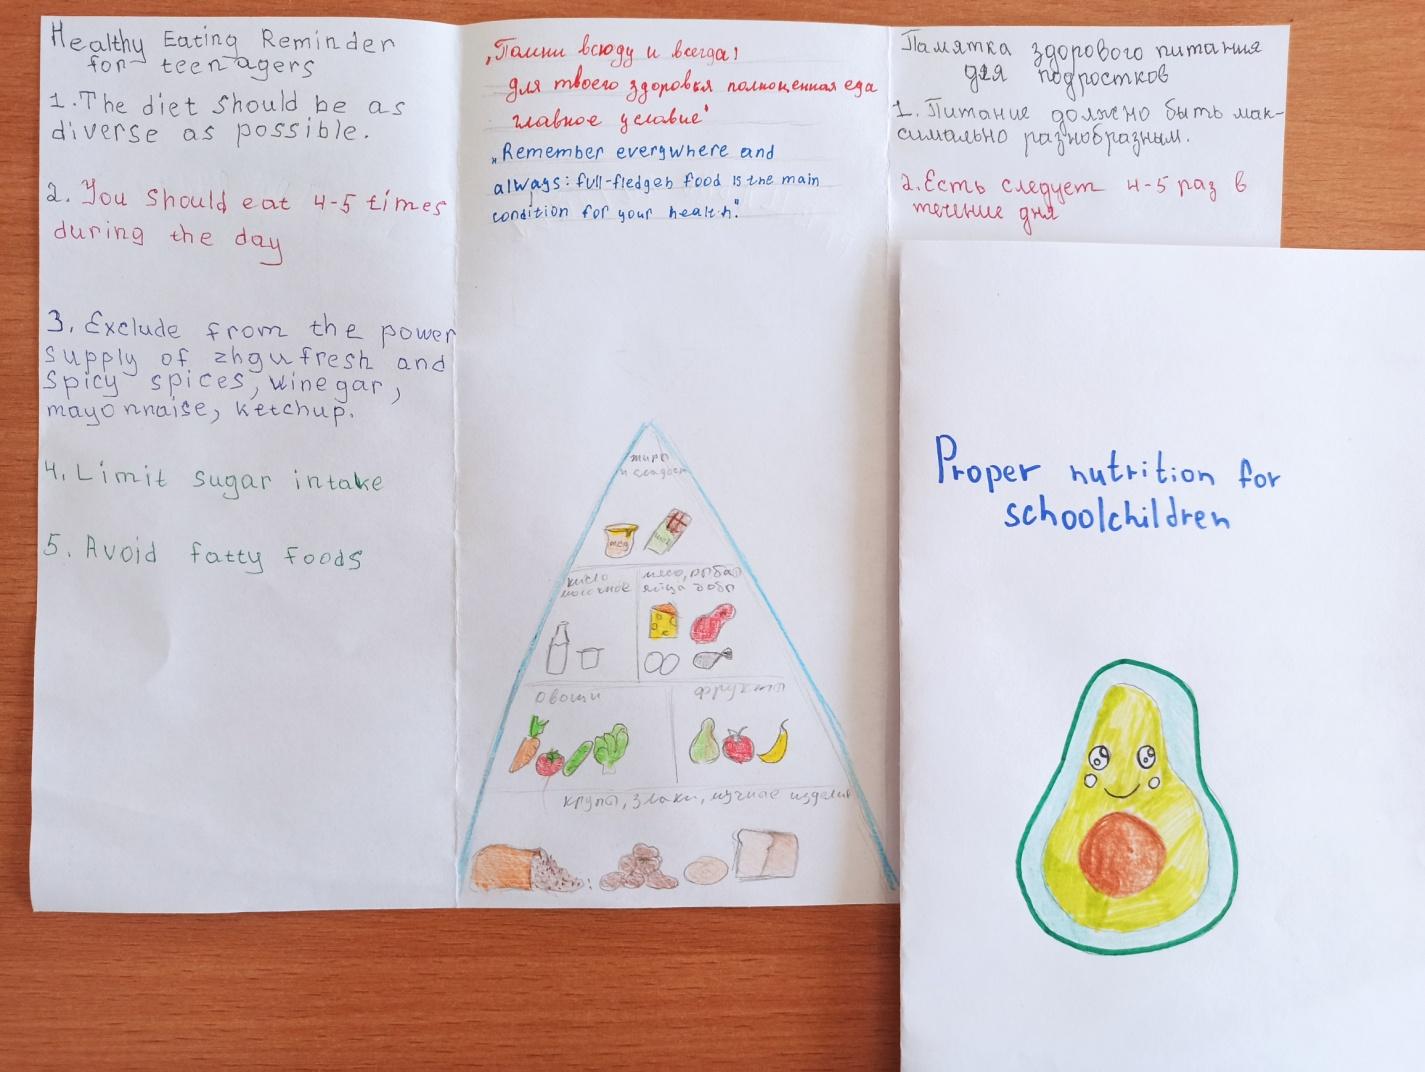 Healthy Eating Reminder
for teenagers
1. The diet should be as
diverse as possible.
2. You should eat 4-5 times
during the day
3. Exclude from the power
supply of zhgufresh and
spicy spices, winegar,
mayonnaise, ketchup.
4. Limit sugar intake
5. Avoid fatty foods
„Помни всюду и всегда!
для твоего здоровья полноценная еда
главное условие"
„Remember everywhere and
always: full-fledgeh food is the main
condition for your health."
жиры
и сладост
мёд
кисло
молочное
мясо, рыба
яйца бобы
овощи
фрукты
крупы, злаки, мучные изделия
Памятка здорового питания
для подростков
1. Питание должно быть мак-
симально разнобразным.
2. Есть следует 4-5 раз в
течение дня
Proper nutrition for
schoolchildren